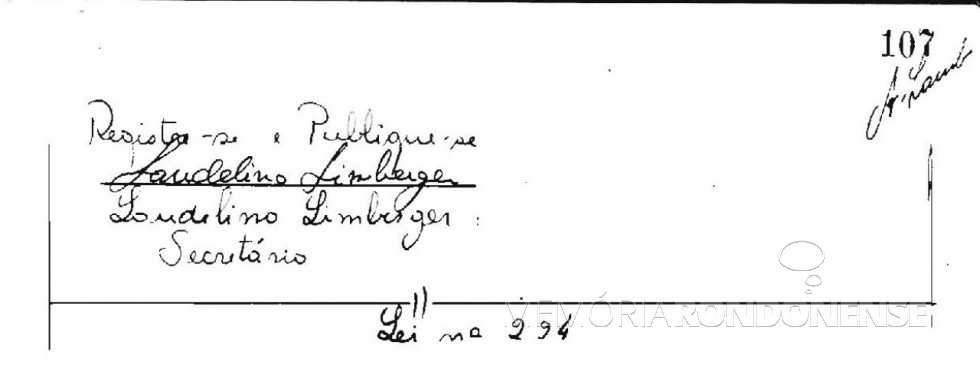 107
Registre-se e Publique-se
Laudelino Limberger
Laudelino Limberger
Secretário
MEMÓRIA RONDONENSE
Lei nº 294